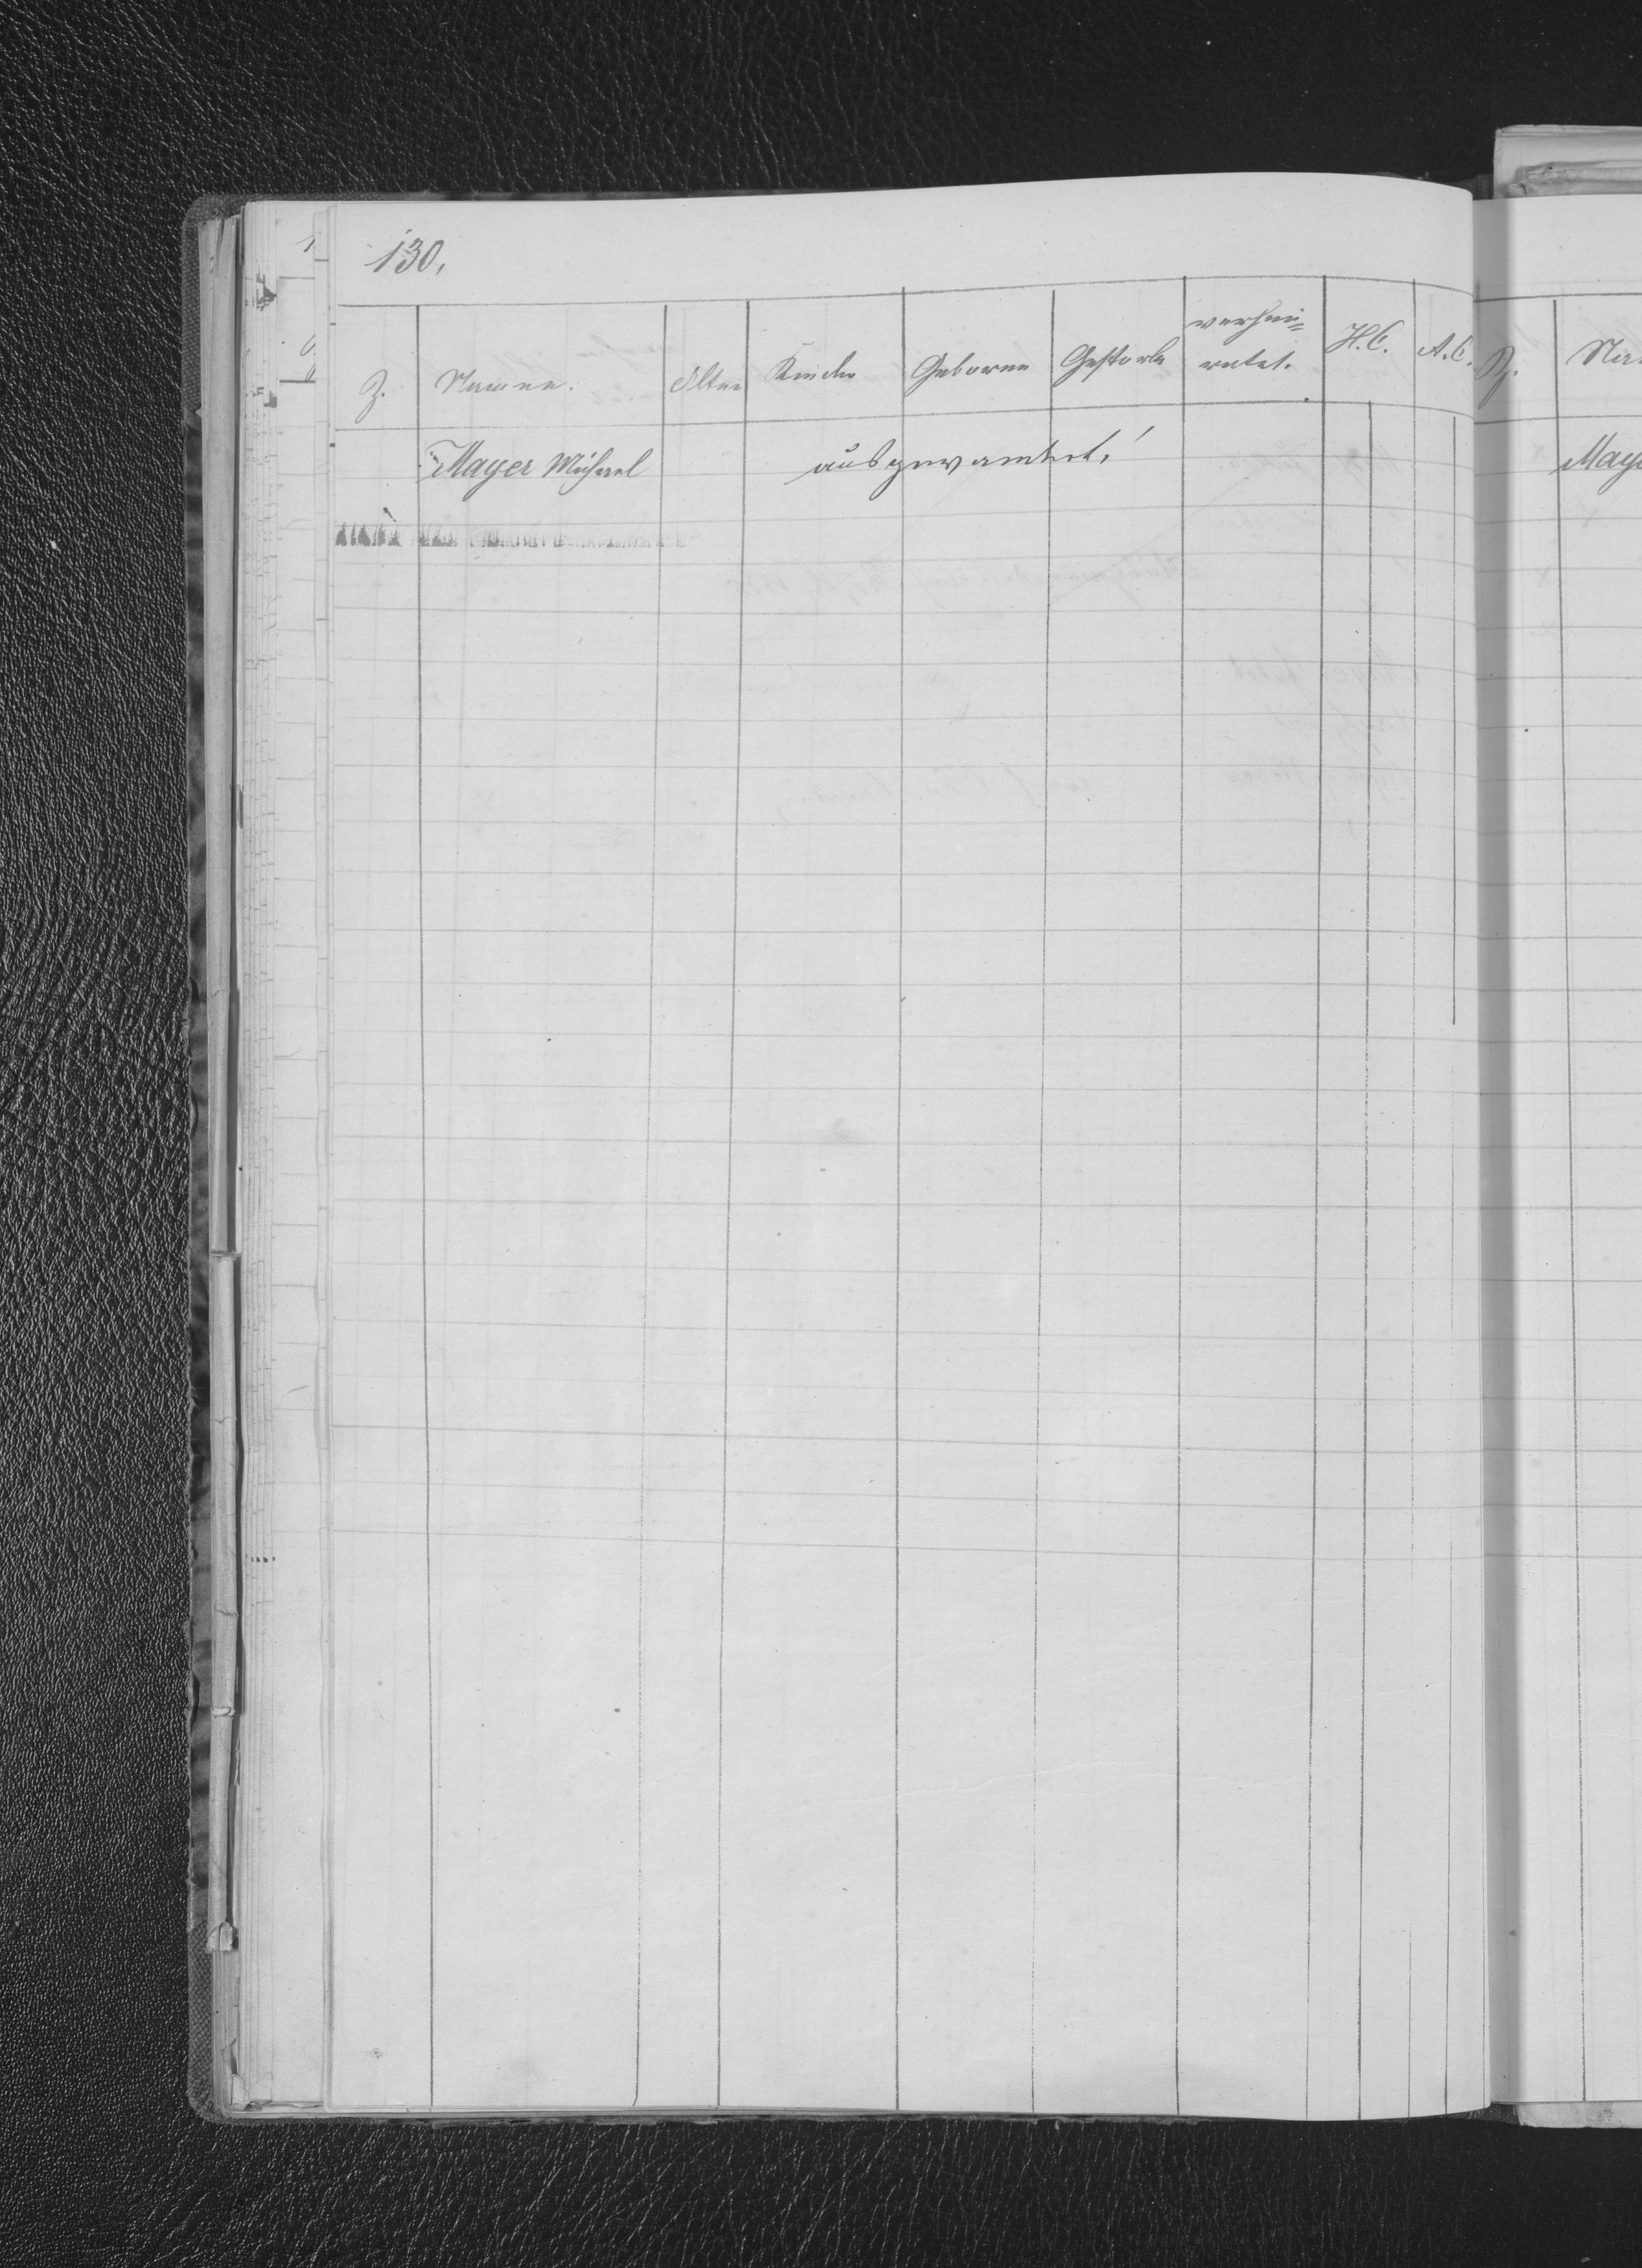 130.
Z. Namen. Alter Kinder Geboren Gestorben verhei=
ratet. H.C. A.C.
Mayer Michael ausgewandert!
Z. Na
Maye